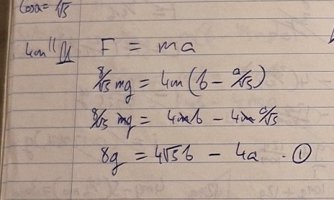 cos α = /√5
4m || F = ma
8/√5 mg = 4m(b - a/√5)
8/√5 mg = 4mb - 4m a/√5
8g = 4√5b - 4a - ①